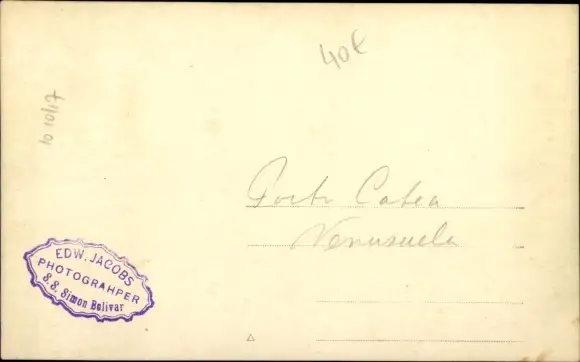 40€
10 10/17
Porto Cabea
Venusuela
EDW. JACOBS
PHOTOGRAHPER
S.S. Simon Bolivar